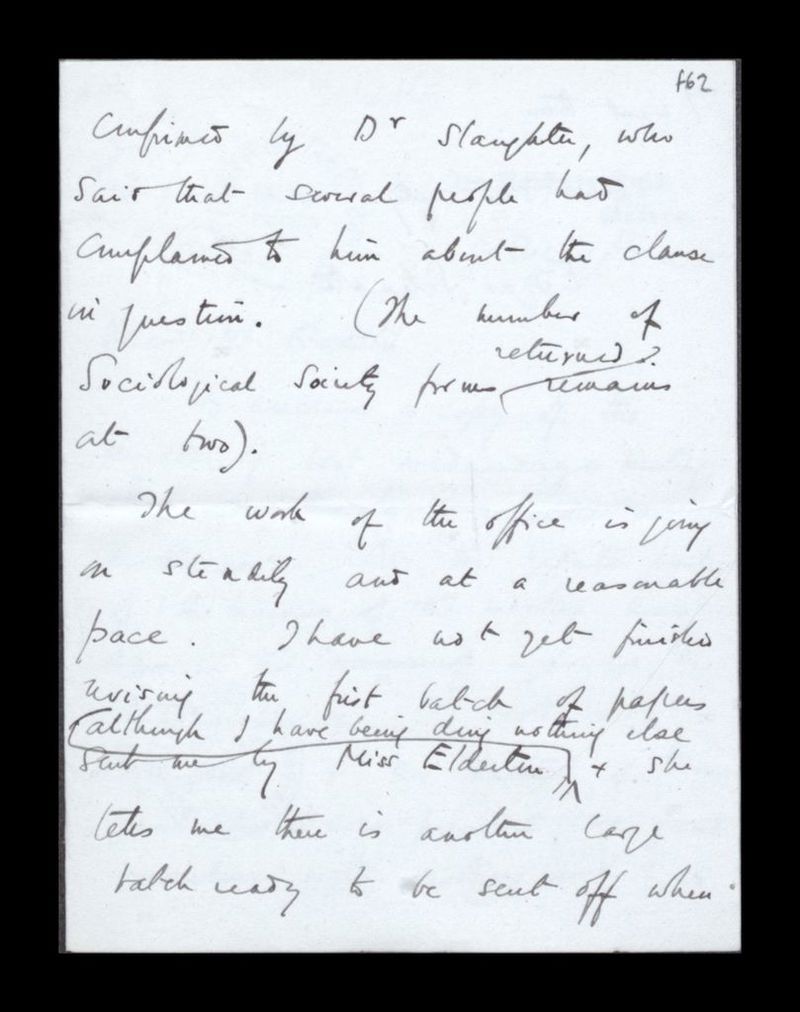 f62
Confirmed by Dr Slaughter, who
said that several people had
complained to him about the clause
in question. (The number of
returned
Sociological Society forms remains
at two).
The work of the office is going
on steadily and at a reasonable
pace. I have not yet finished
revising the first batch of papers
(although I have being doing nothing else
sent me by Miss Elderton) + she
tells me there is another large
batch ready to be sent off when